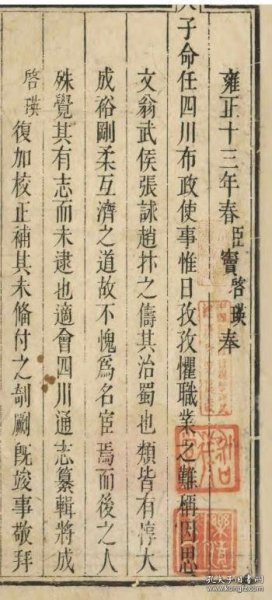 雍正十三年春臣竇啓瑛奉
子命任四川布政使事惟日孜孜懼職業之難稱因思
文翁武侯張詠趙抃之儔其治蜀也類皆有惇大
成裕剛柔互濟之道故不愧爲名宦焉而後之人
殊覺其有志而未逮也適會四川通志纂輯將成
啓瑛復加校正補其未備付之剞劂旣竣事敬拜